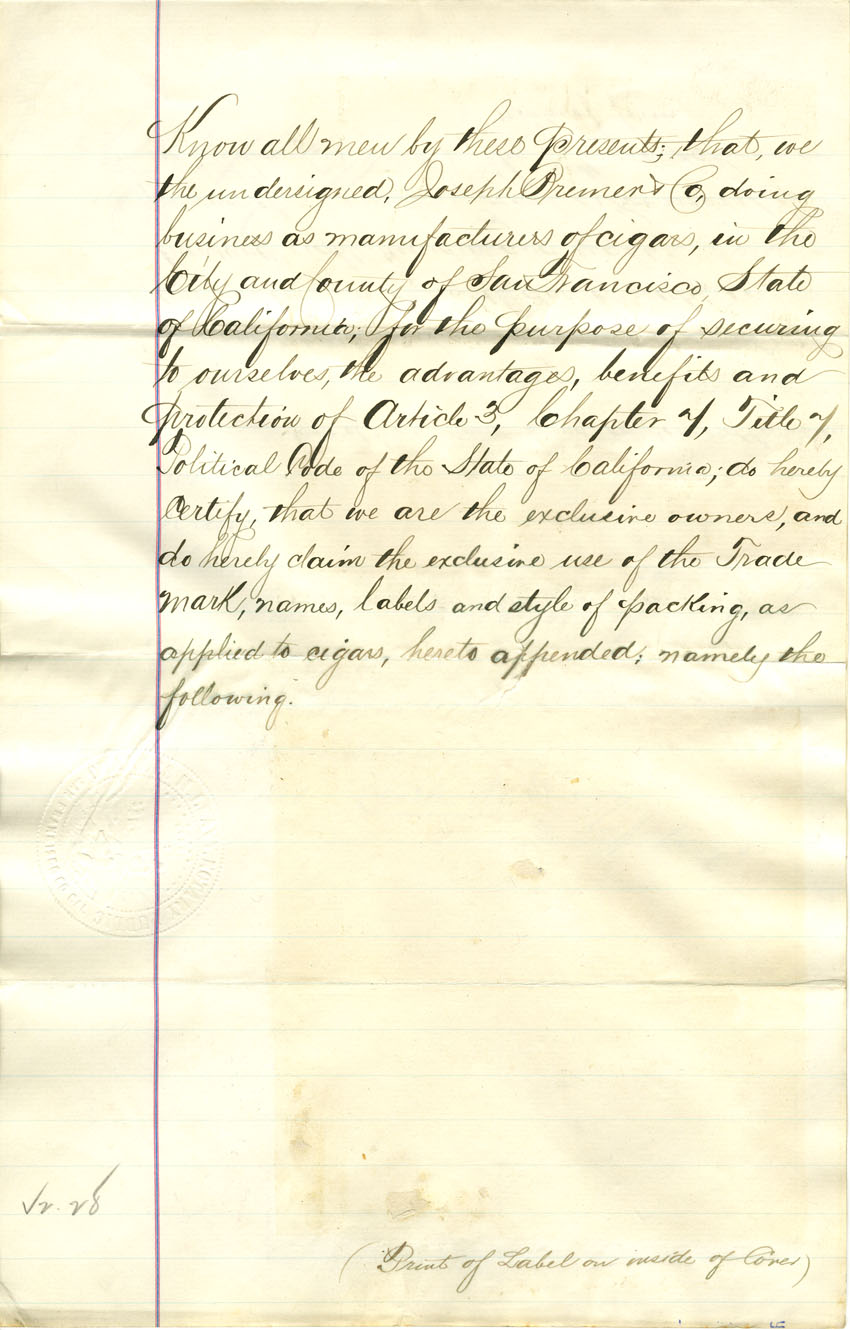 Know all men by these presents; that, we
the undersigned, Joseph Bremer & Co, doing
business as manufacturers of cigars, in the
City and County of San Francisco, State
of California; for the purpose of securing
to ourselves, the advantages, benefits and
protection of Article 3, Chapter 7, Title 7,
Political Code of the State of California; do hereby
Certify, that we are the exclusive owners, and
do hereby claim the exclusive use of the Trade
mark, names, labels and style of packing, as
applied to cigars, hereto appended; namely the
following.
28
(Print of Label on inside of Cover)